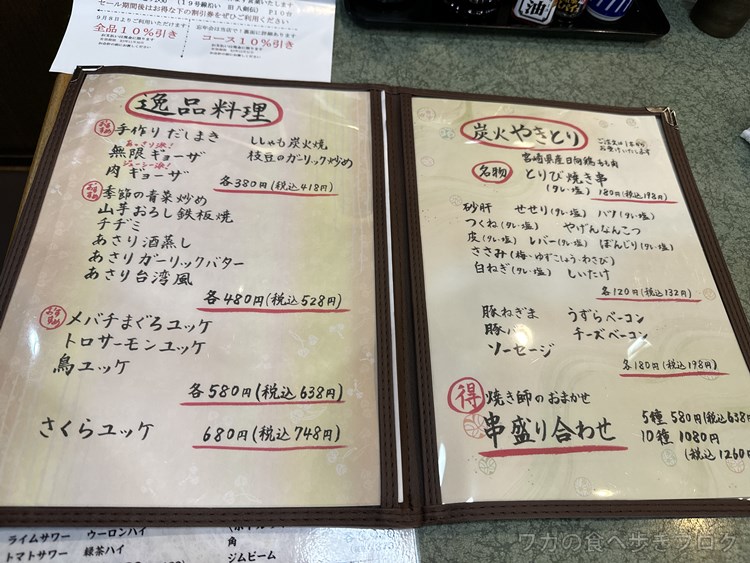 セール期間後はお得な下の割引券をぜひご利用ください
全品10%引き
コース10%引き
油
逸品料理
おすすめ
手作りだしまき
ししゃも炭火焼
あっさり派!
無限ギョーザ
枝豆のガーリック炒め
ジューシー派!
肉ギョーザ
各380円(税込418円)
おすすめ
季節の青菜炒め
山芋おろし鉄板焼
チヂミ
あさり酒蒸し
あさりガーリックバター
あさり台湾風
各480円(税込528円)
おすすめ
メバチまぐろユッケ
トロサーモンユッケ
鳥ユッケ
各580円(税込638円)
さくらユッケ
680円(税込748円)
炭火やきとり
ご注文は1本から
お受けいたします
名物
宮崎県産日向鶏もも肉
とりび焼き串
(タレ・塩)
180円(税込198円)
砂肝 せせり(タレ・塩) ハツ(タレ・塩)
つくね(タレ・塩) やげんなんこつ
皮(タレ・塩) レバー(タレ・塩) ぼんじり(タレ・塩)
ささみ(梅・ゆずこしょう・わさび)
白ねぎ(タレ・塩) しいたけ
各120円(税込132円)
豚ねぎま うずらベーコン
豚バラ チーズベーコン
ソーセージ
各180円(税込198円)
得
焼き師のおまかせ
串盛り合わせ
5種 580円(税込638
10種 1080円
(税込1260
ライムサワー ウーロンハイ
トマトサワー 緑茶ハイ
角
ジムビーム
ワカの食べ歩きブログ